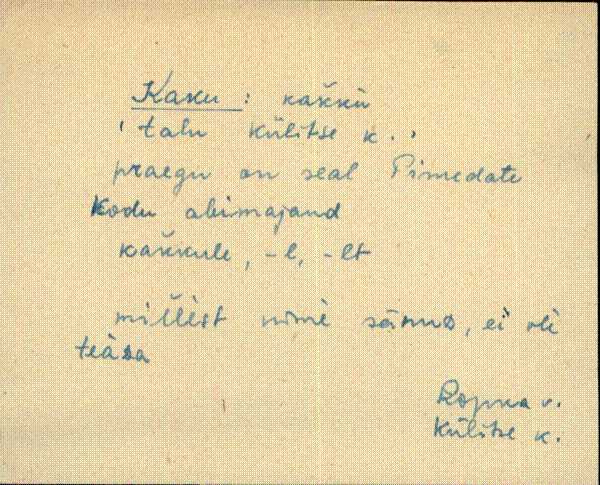 Kaku : kakkù
' talu Külitse k. '
praegu on seal Pimedate
Kodu abimajand
kakkule, -l, -lt
nimi sànùd, ei òli
teàda
Ropka v.
Külitse k.